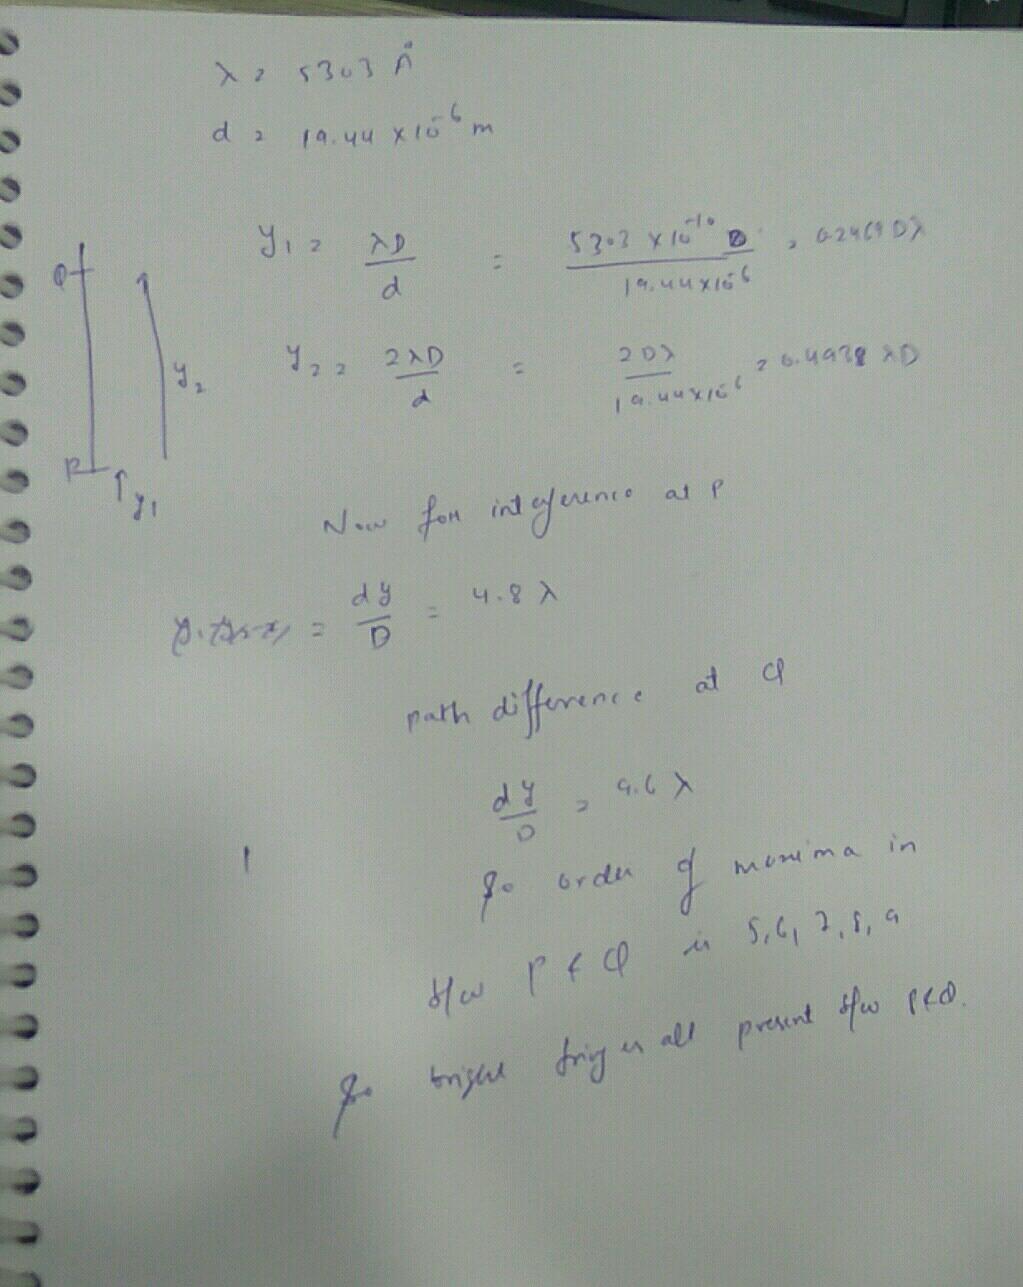 λ = 5303 Å
d = 19.44 × 10⁻⁶ m
y₁ = λD / d = 5303 × 10⁻¹⁰ D / 19.44 × 10⁻⁶ = 0.2469 Dλ
Q
y₂
y₂ = 2λD / d = 2Dλ / 19.44 × 10⁻⁶ = 0.4938 λD
P
y₁
Now for interference at P
= dy / D = 4.8 λ
path difference at Q
dy / D = 9.6 λ
So order of maxima in
b/w P & Q is 5, 6, 7, 8, 9
So bright fringes all present b/w P & Q.